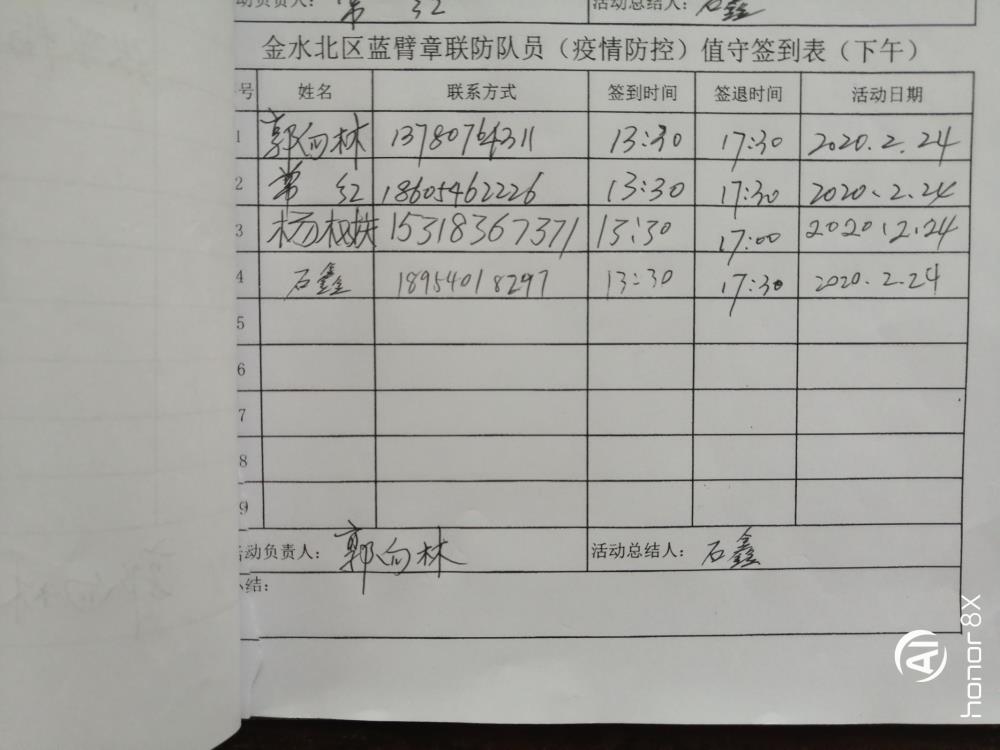 动负责人： 常 红 活动总结人：石鑫
金水北区蓝臂章联防队员（疫情防控）值守签到表（下午）
号 姓名 联系方式 签到时间 签退时间 活动日期
1 郭向林 13780764311 13:30 17:30 2020.2.24
2 常 红 18605462226 13:30 17:30 2020.2.24
3 杨 15318367371 13:30 17:00 2020.2.24
4 石鑫 18954018297 13:30 17:30 2020.2.24
5
6
7
8
9
活动负责人： 郭向林 活动总结人： 石鑫
小结：
AI
honor 8X